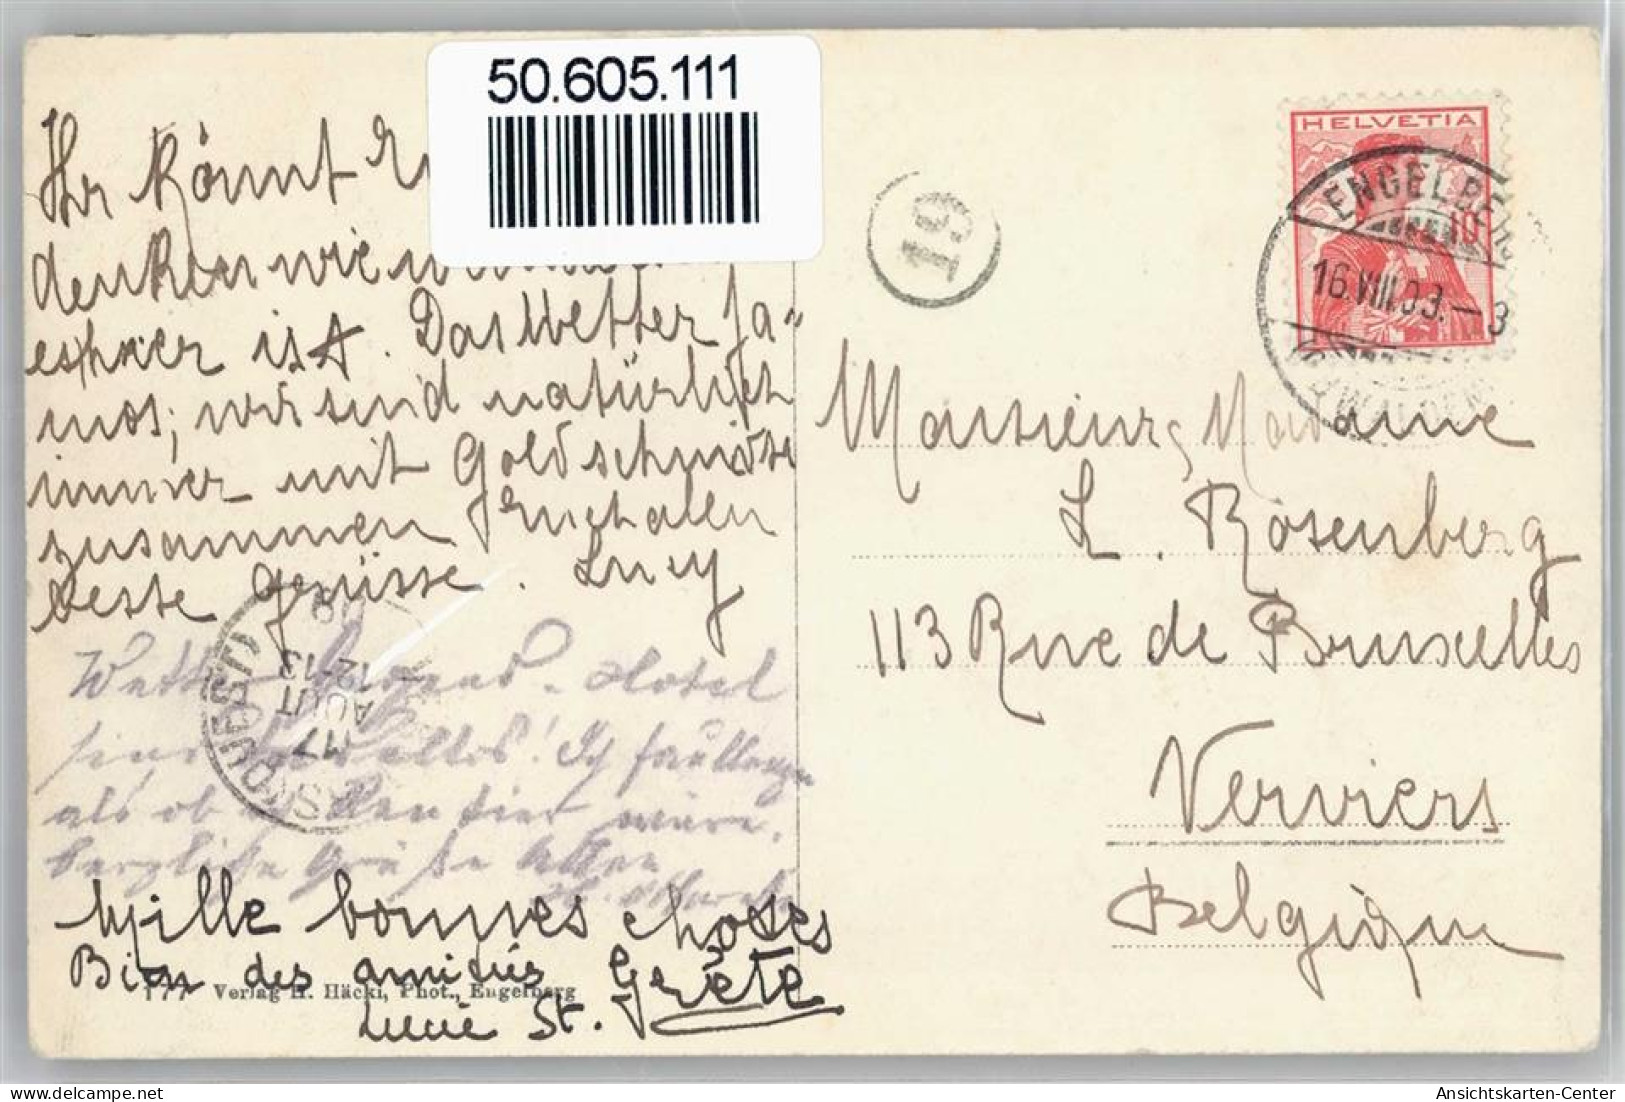 50.605.111
Ihr könnt
denken wie
es hier ist. Das Wetter fa-
mos; wir sind natürlich
immer mit Goldschmidts
zusammen
beste Genüsse. Lucy
Wetter Hotel
! Ich faullenze
als ob wäre.
herzliche Grüße
Mille bonnes choses
Grete
Bien des amitiés
Lucie St.
177 Verlag H. Häcki, Phot., Engelberg
19
HELVETIA
10
ENGELBERG
16.VIII.09.—3
17
AOUT
12-13
Monsieur, Madame
L. Rosenberg
113 Rue de Bruxelles
Verviers
Belgique
Ansichtskarten-Center